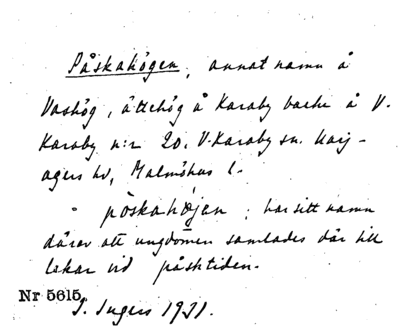 Påskahögen, annat namn å
Vashög, ättehög å Karaby backe å V.
Karaby n:r 20. V. Karaby sn. Harj-
agers hd, Malmöhus l.
påskahøjan, har sitt namn
därav att ungdomen samlades där till
lekar vid påsktiden.
Nr 5615.
I. Ingers 1921.